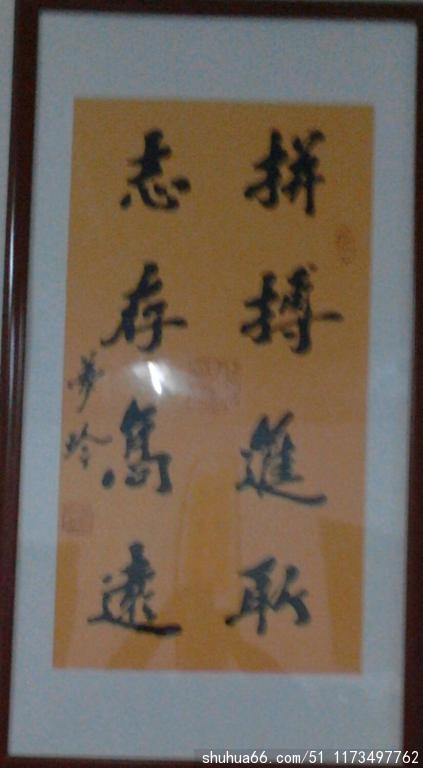 拼搏進取
志存高遠
shuhua66.com/51 1173497762